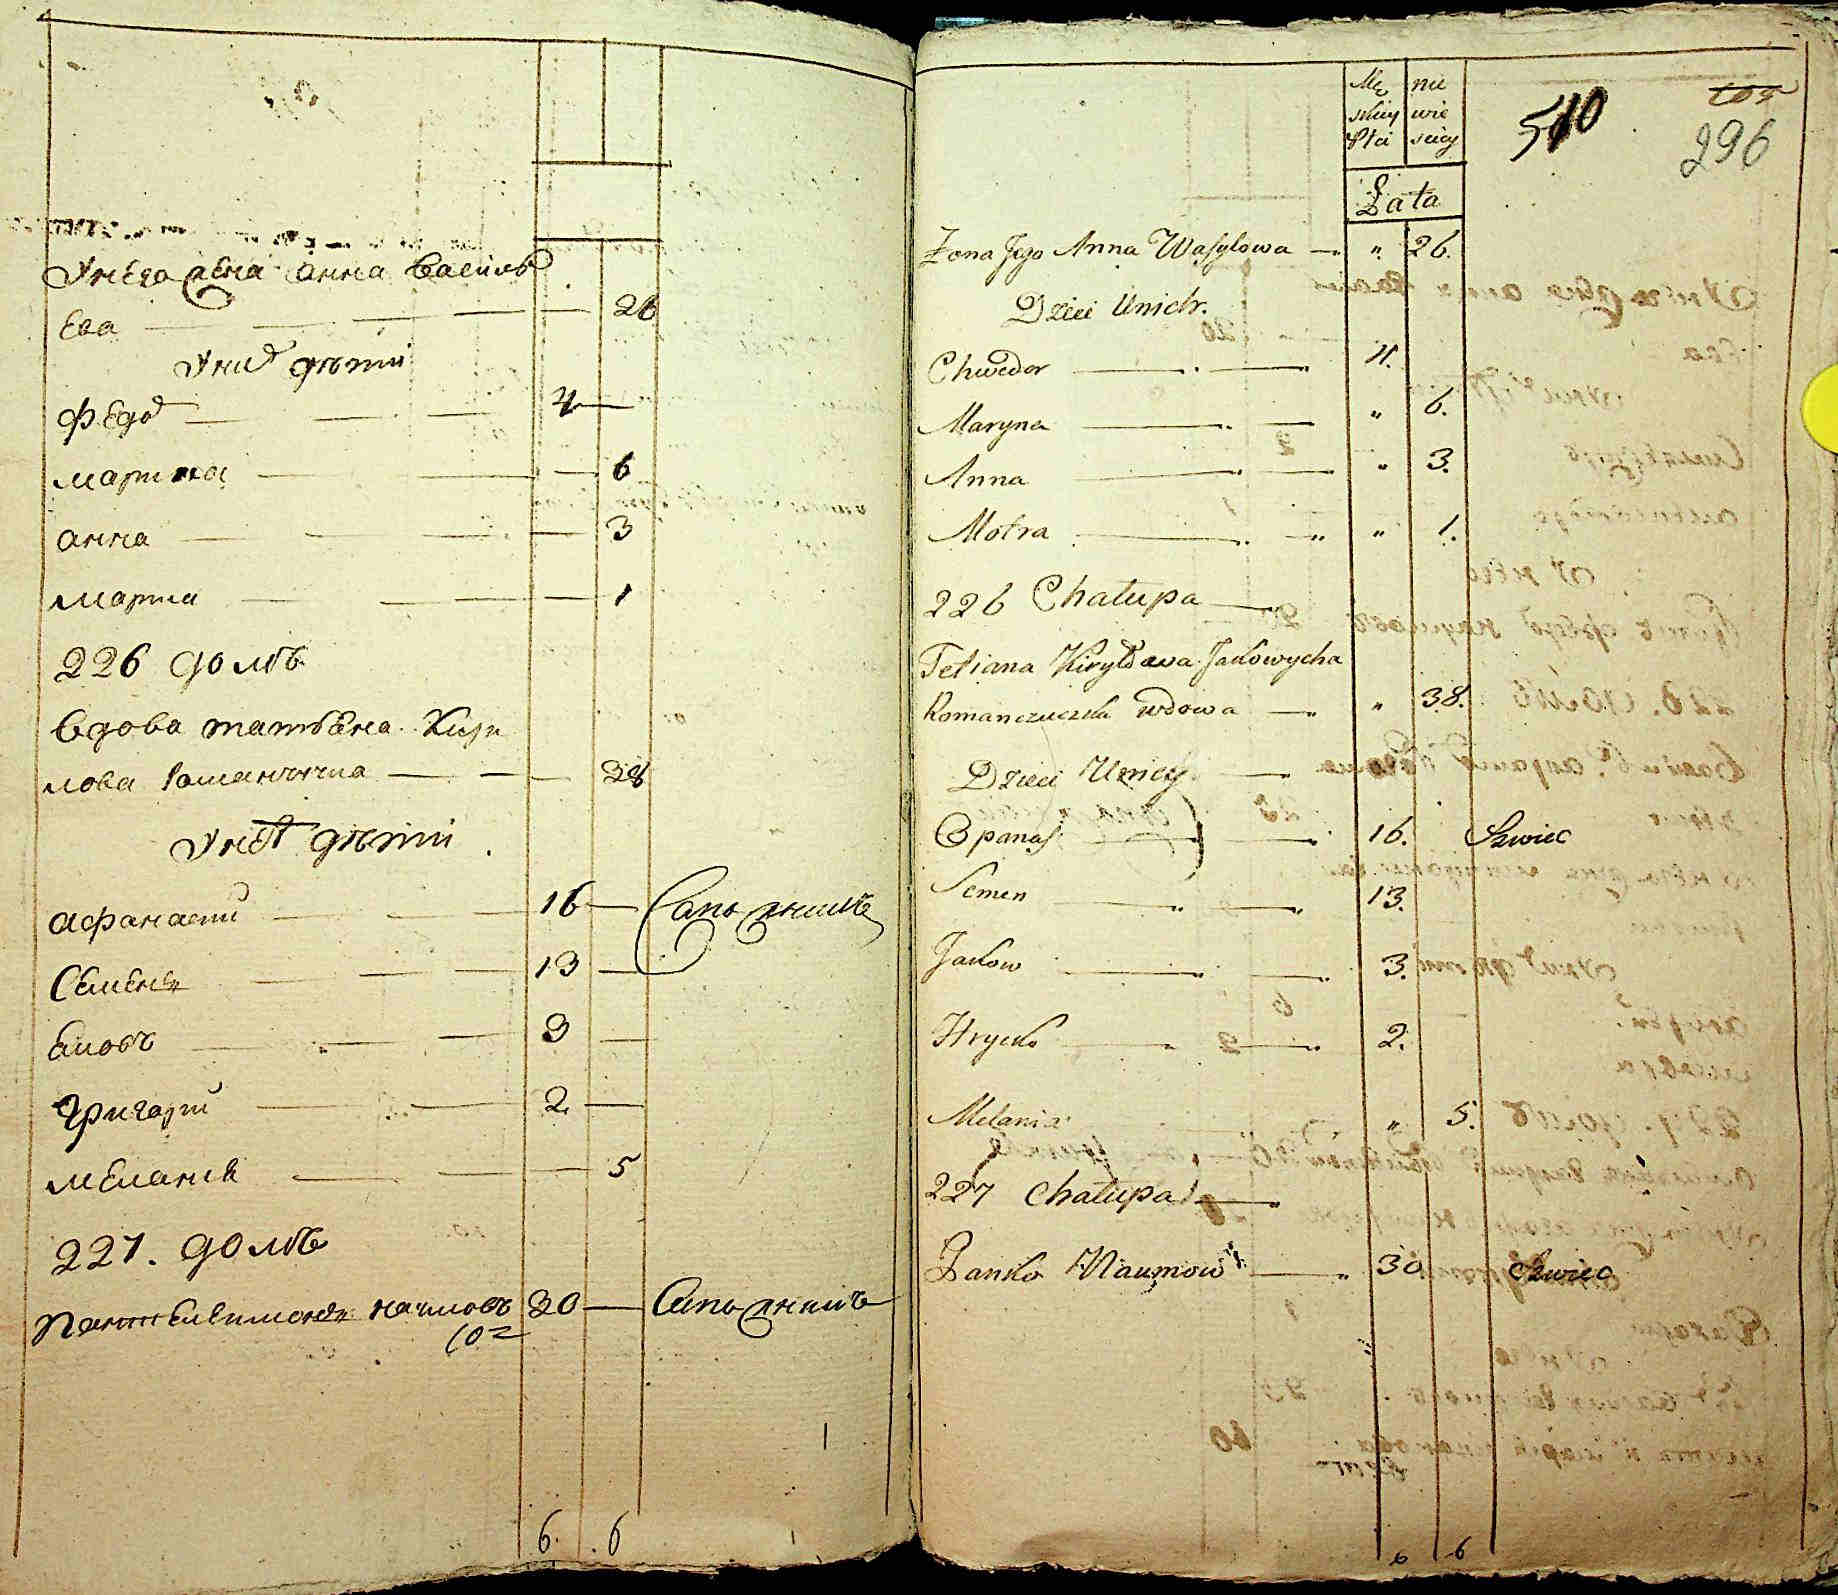 Унего жена анна васильѣ
ева 26
Унихъ дѣти
Федоръ 4
марина 6
анна 3
мариа 1
226 домъ
вдова татьяна Кири
лова Романчична 38
Унея дѣти
афанасий 16 Сапожникъ
Семенъ 13
яковъ 3
Григорий 2
мелания 5
227. домъ
Пантелеимонъ наумовъ 30 Сапожникъ
6. 6
Mę nie
skiey wie
Płci sciey
510
296
Łata
Żona Jego Anna Wasylowa " 26.
Dzieci Unich.
Chwedor 4.
Maryna " 6.
Anna " 3.
Motra " 1.
226 Chałupa
Tetiana Kiryłowa Jakowycha
Romanczuczka wdowa " 38.
Dzieci Uniey
Opanas 16. Szwiec
Semen 13.
Jakow 3.
Hrycko 2.
Melania " 5.
227 Chałupa
Panko Naumow 30 Szwiec
6 6